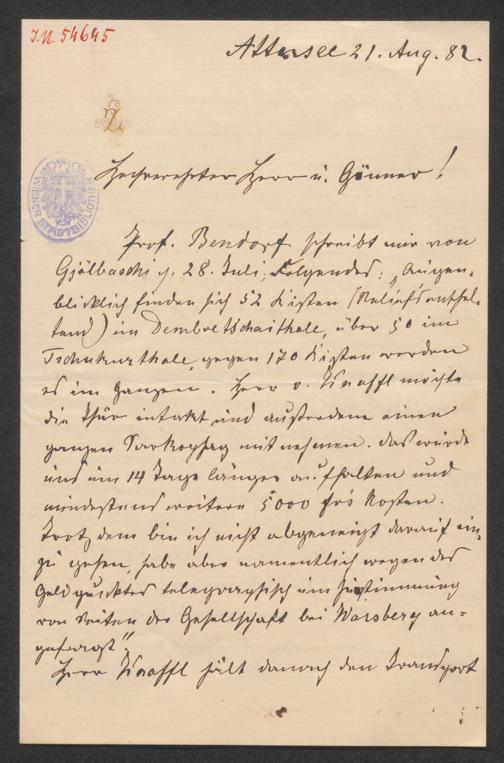 J.N. 54645
Attersee 21. Aug. 82.
WIENER STADTBIBLIOTHEK
Hochverehrter Herr u. Gönner!
Prof. Bendorf schreibt mir von
Gjölbaschi z. 28. Juli, Folgendes: "Augen-
blicklich finden sich 52 Kisten (Reliefs enthal-
tend) im Dembretschaithale, über 50 im
Tschukurthale, gegen 170 Kisten werden
es im Ganzen. Herr v. Knaffl möchte
die Thür intakt und außerdem einen
ganzen Sarkophag mitnehmen. Das würde
uns um 14 Tage länger aufhalten und
mindestens weitere 5000 frs kosten.
Trotzdem bin ich nicht abgeneigt darauf ein-
zu gehen, habe aber namentlich wegen des
Geldpunktes telegraphisch um Zustimmung
von Seiten der Gesellschaft bei Warsberg an-
gefragt".
Herr Knaffl hält danach den Transport